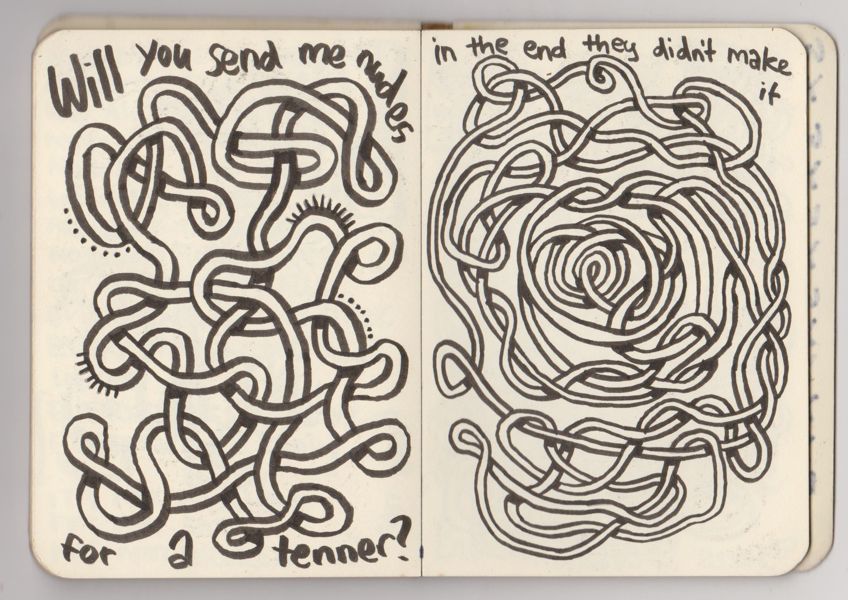 Will you send me nudes
for a tenner?
in the end they didn't make
it